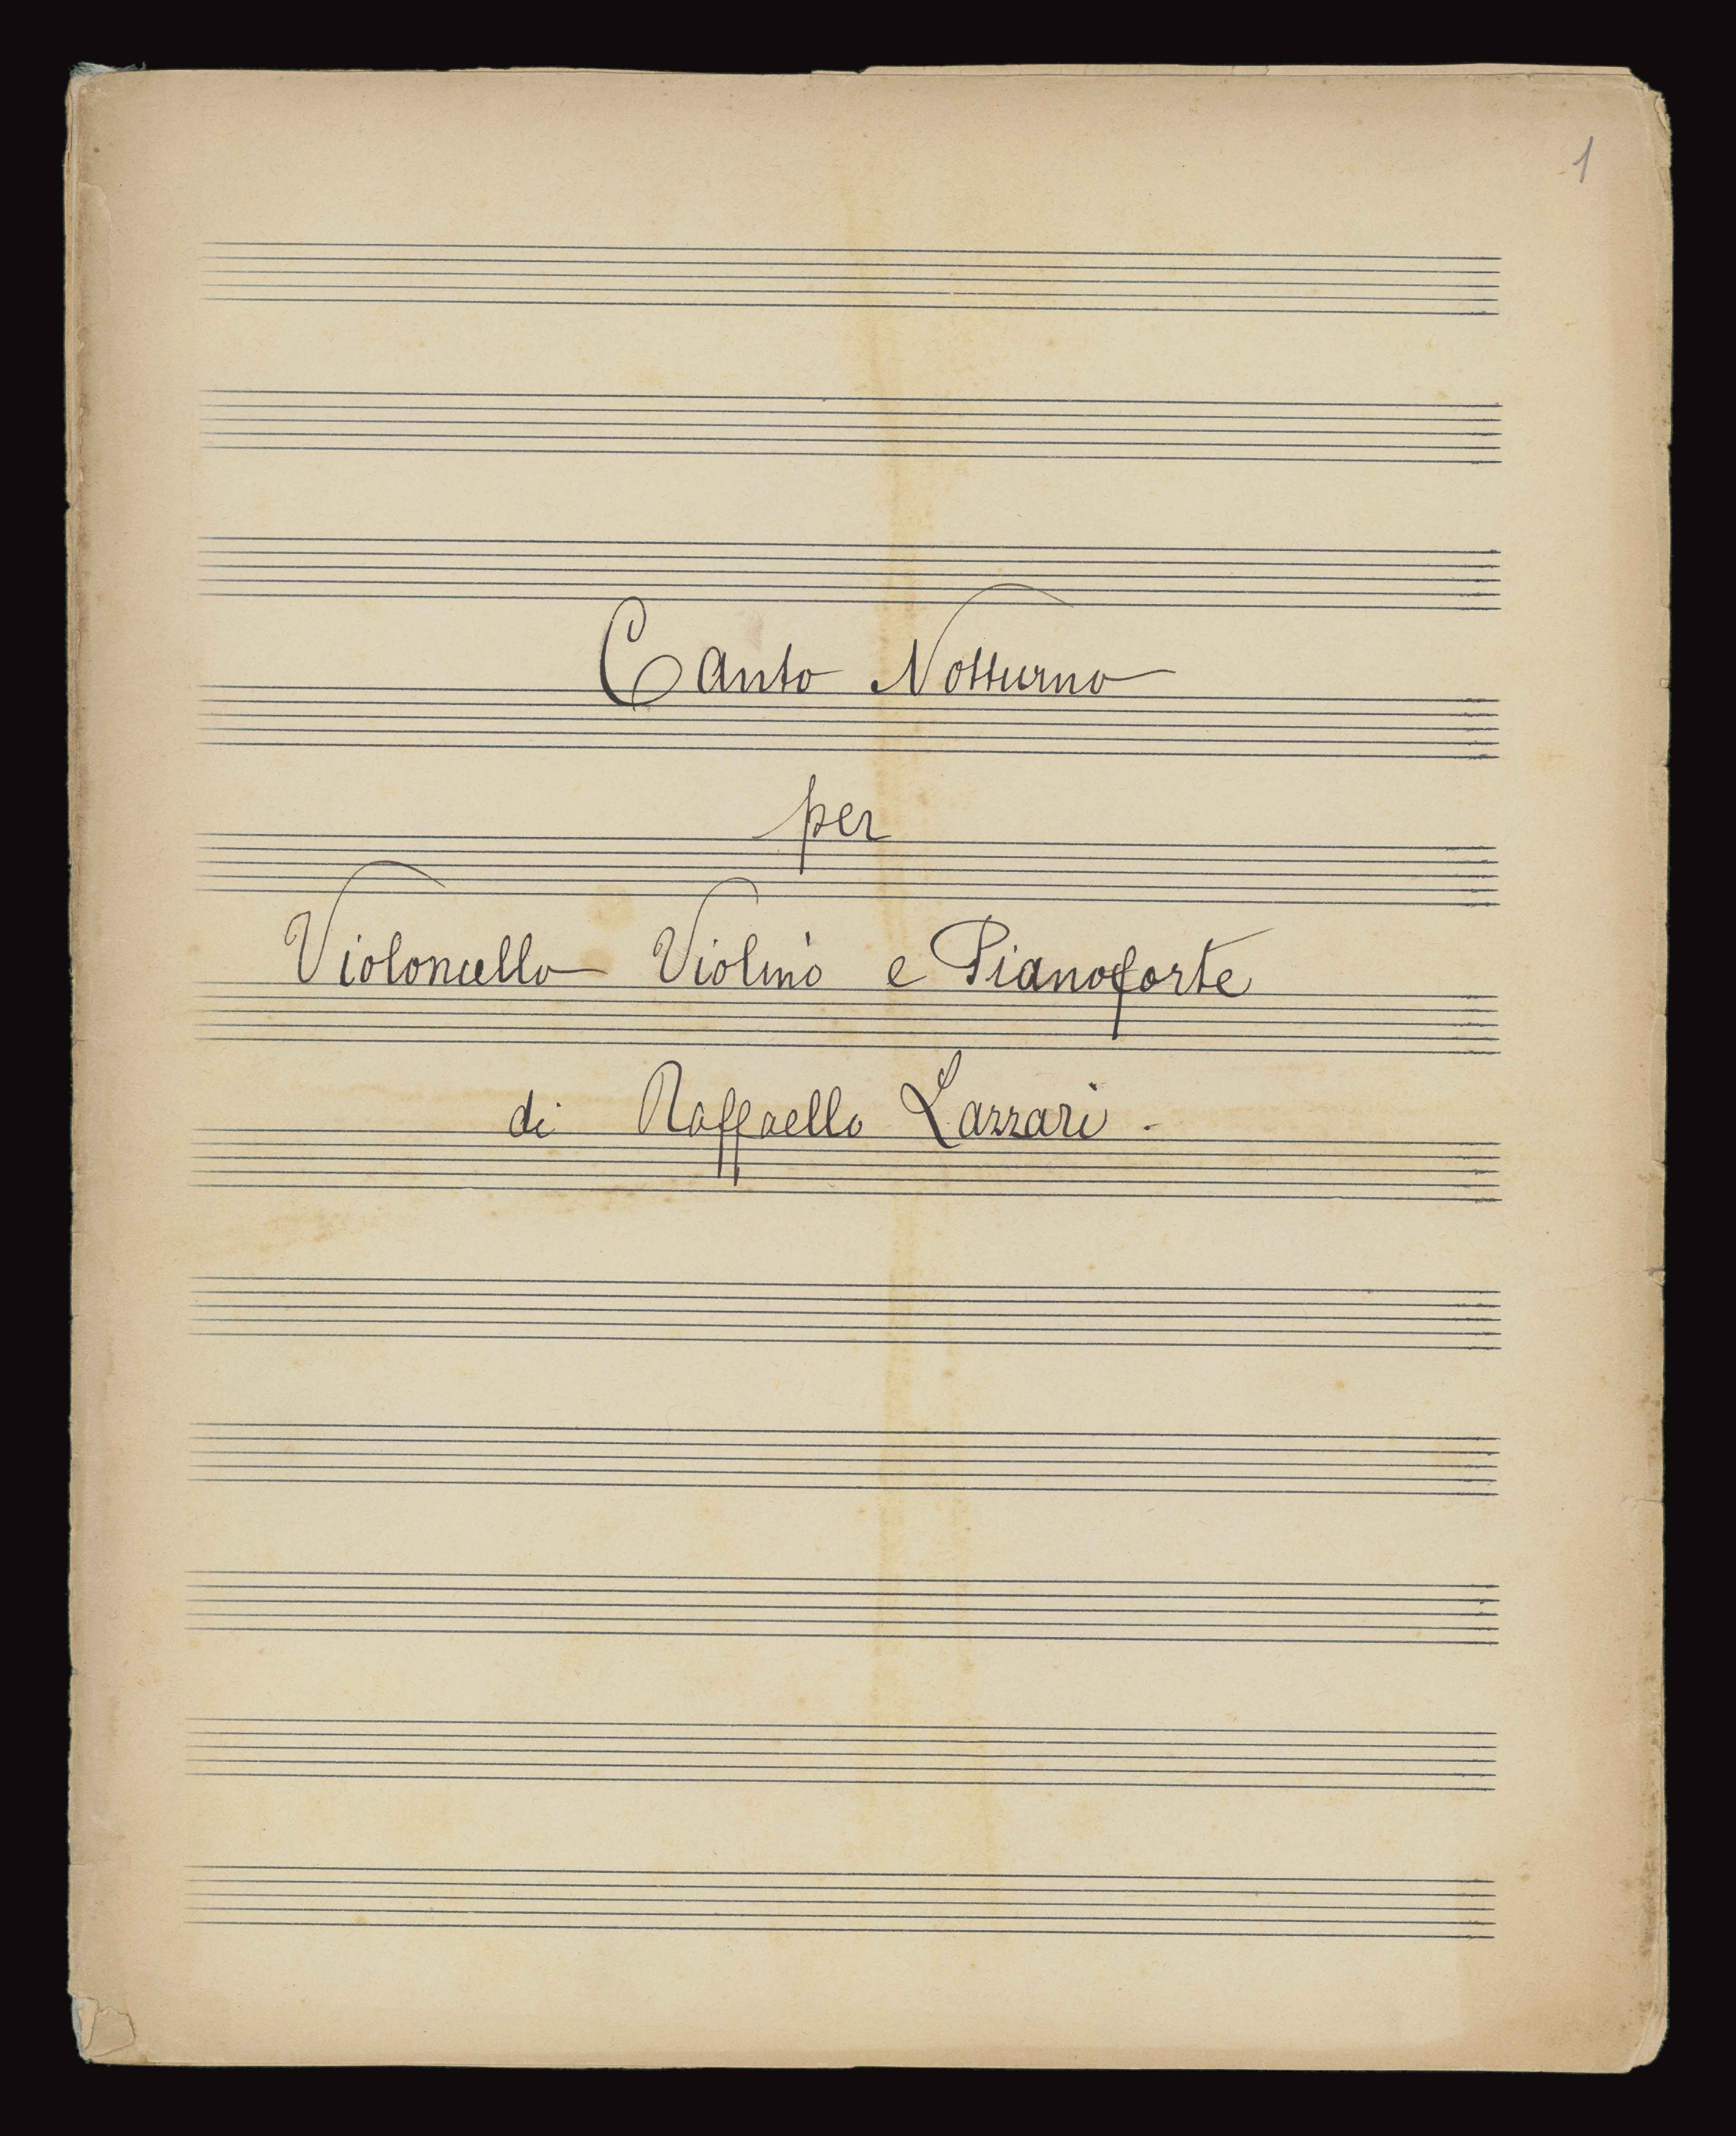 1
Canto Notturno
per
Violoncello Violino e Pianoforte
di Raffaello Lazzari.